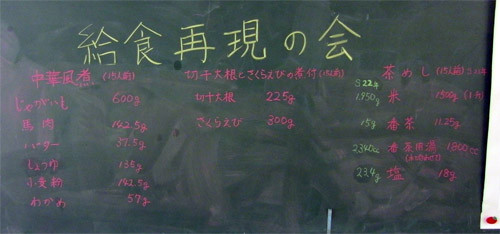 給食再現の会
中華風煮 (15人前)
じゃがいも 600g
馬肉 142.5g
バター 37.5g
しょうゆ 135g
小麦粉 142.5g
わかめ 57g
切干大根とさくらえびの煮付 (15人前)
切干大根 225g
さくらえび 300g
茶めし (15人前)
S22年
1,950g 米 1500g
15g 番茶 11.25g
2340cc 番茶用湯 1800cc
23.4g 塩 18g